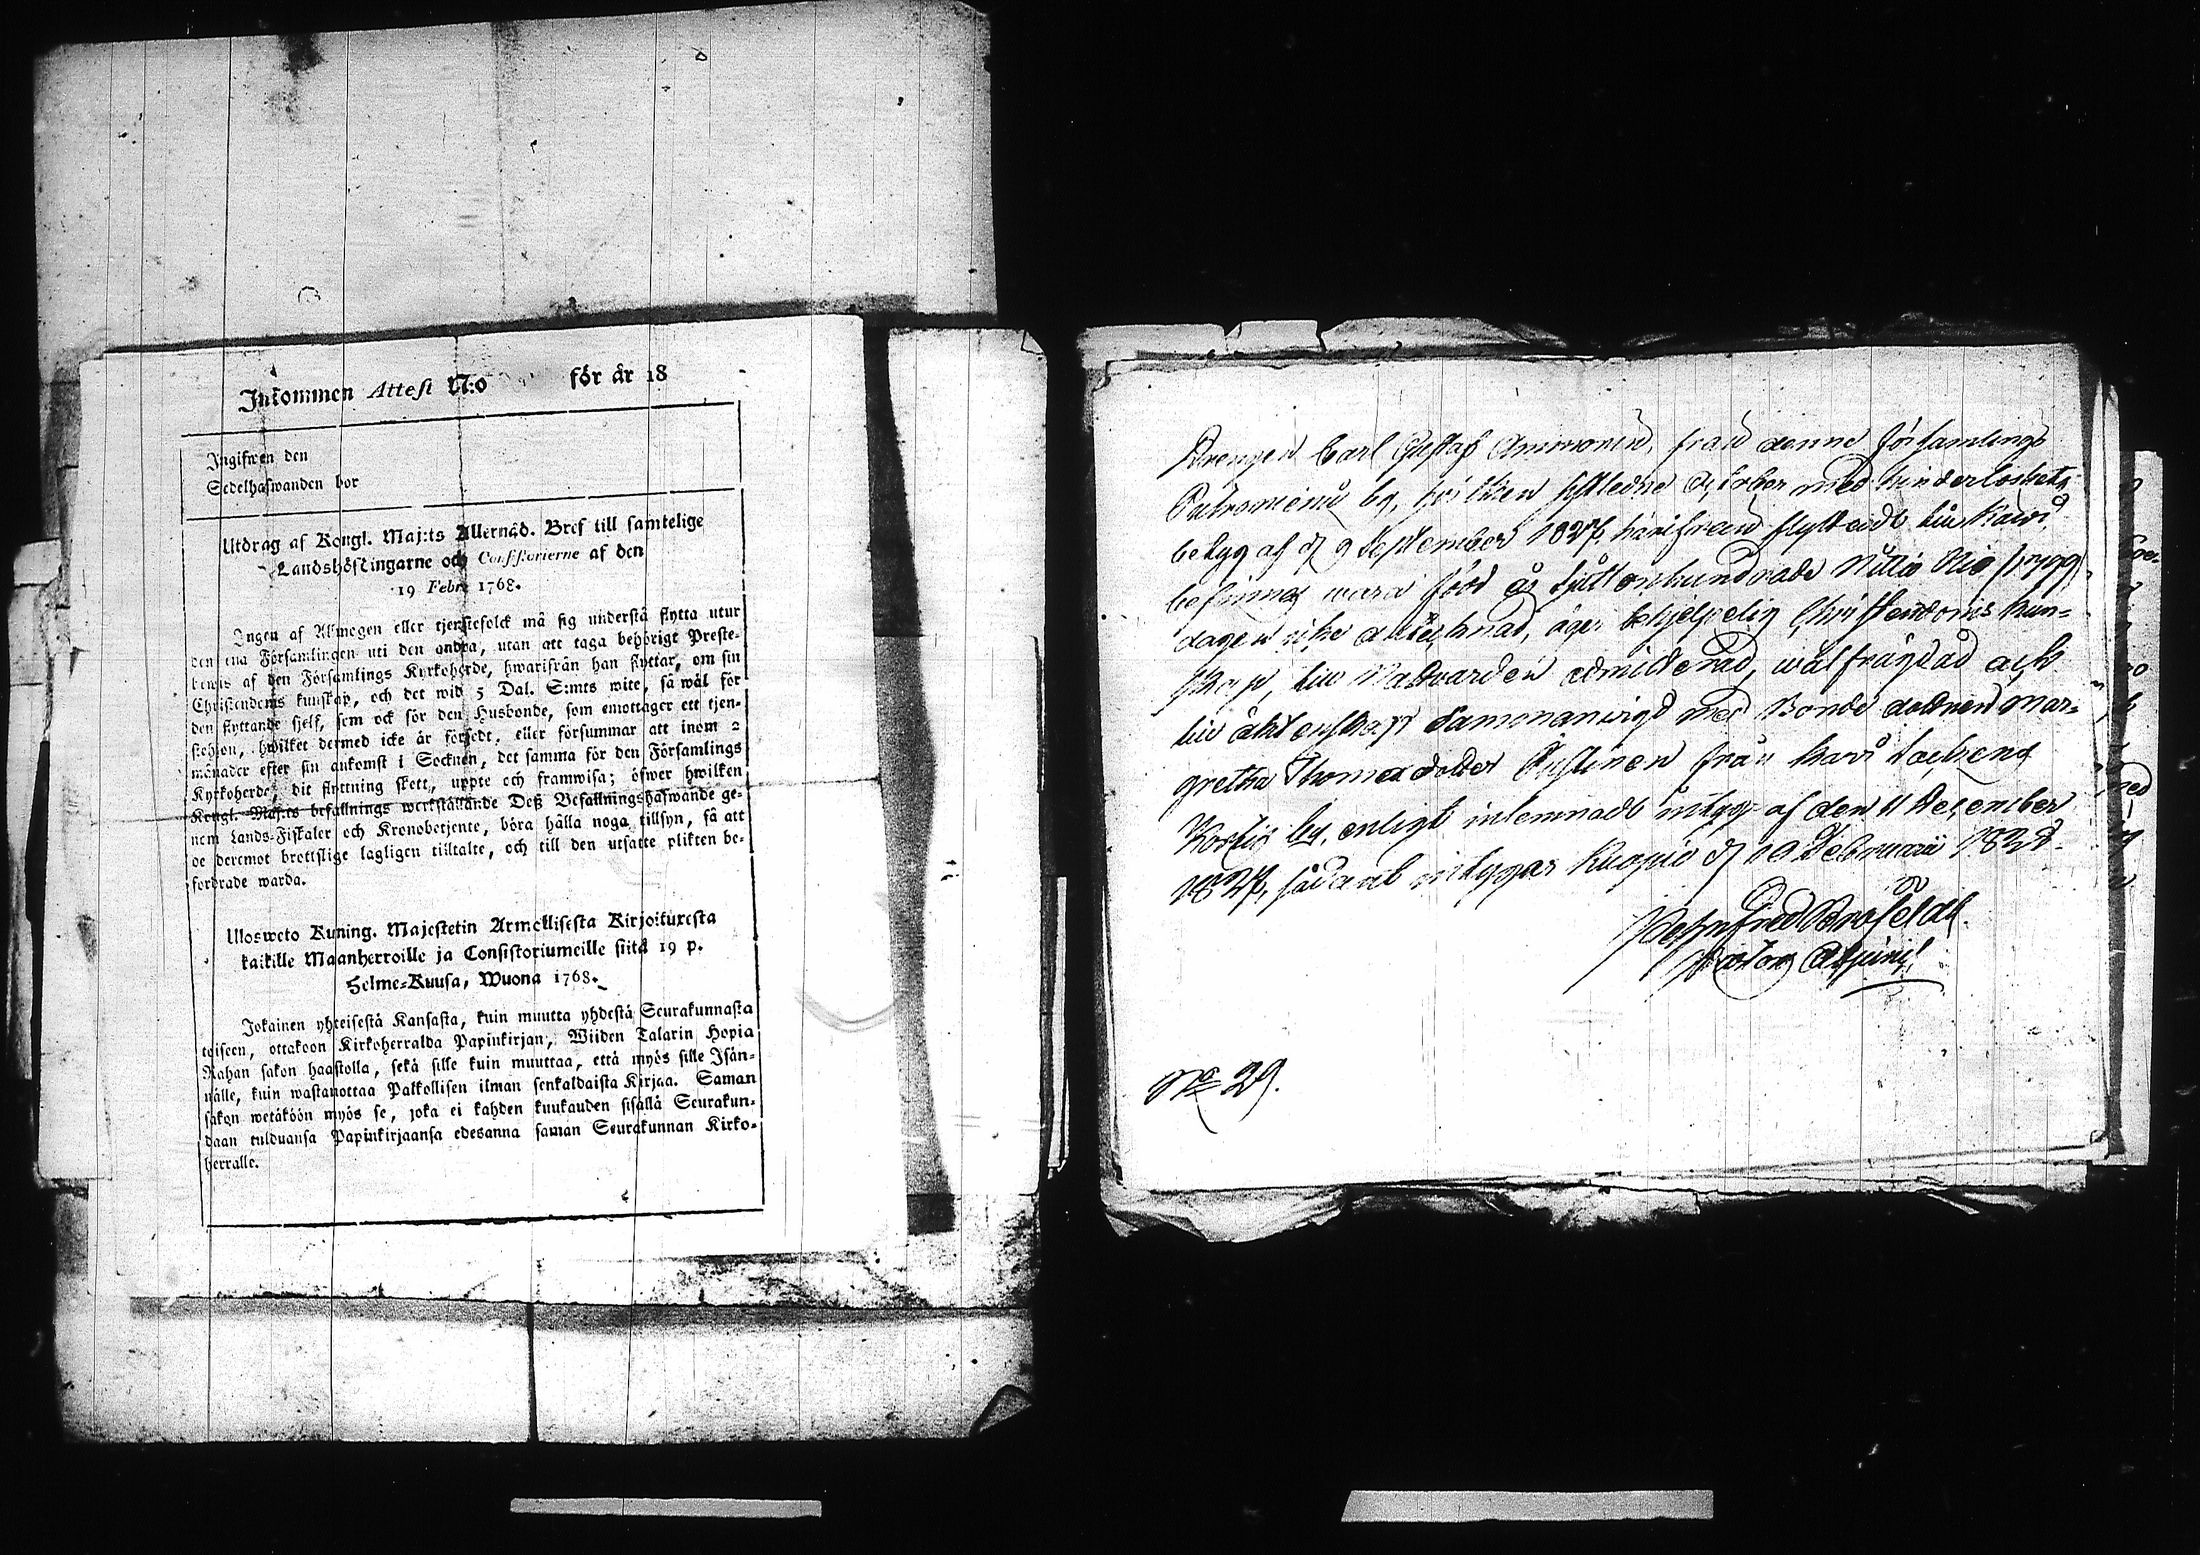 Inkommen Attest N:o för år 18
Ingifwen den
Sedelhafwanden bor
Utdrag af Kongl. Maj:ts Allernåd. Bref till samtelige
Landshöfdingarne och Consistorierne af den
19 Febr. 1768.
Ingen af Allmogen eller tjenstefolck må sig understå flytta utur
den ena Församlingen uti den andra, utan att taga behörigt Preste-
bewis af den Församlings Kyrkoherde, hwarifrån han flyttar, om sin
Christendoms kunskap, och det wid 5 Dal. S:mts wite, så wäl för
den flyttande sjelf, som ock för den Husbonde, som emottager ett tjen-
stehjon, hwilket dermed icke är försedt, eller försummar att inom 2
månader efter sin ankomst i Socknen, det samma för den Församlings
Kyrkoherde, dit flyttning skett, uppte och framwisa; öfwer hwilken
Kongl. Maj:ts befallnings werkställande Deß Befallningshafwande ge-
nom Lands-Fiskaler och Kronobetjente, böra hålla noga tillsyn, så att
de deremot brottslige lagligen tilltalte, och till den utsatte plikten be-
fordrade warda.
Ulosweto Kuning. Majestetin Armollisesta Kirjoituxesta
kaikille Maanherroille ja Consistoriumeille siitä 19 p.
Helme-Kuusa, Wuona 1768.
Jokainen yhteisestä Kansasta, kuin muutta yhdestä Seurakunnasta
toiseen, ottakoon Kirkoherralda Papinkirjan, Wiiden Talarin Hopia
Rahan sakon haastolla, sekä sille kuin muuttaa, että myös sille Isän-
nälle, kuin wastanottaa Palkollisen ilman senkaldaista Kirjaa. Saman
sakon wetäköön myös se, joka ei kahden kuukauden sisällä Seurakun-
daan tulduansa Papinkirjaansa edesanna saman Seurakunnan Kirko-
herralle.
Drengen Carl Gustaf Ammonen, från denne församlings
by, hvilken sistledne October med hinderlöshets
betyg af d 9 September 1827, härifrån flyttade till Kavi,
befinnes wara född år Sjuttonhundrade Nittio Nio
dagen icke antecknad, äger behjelpelig Christendoms kun-
skap, till Nattvarden admitterad, wälfrägdad och
till äktenskap sammanwigd med Bonde dottren Mar-
gretha Thomasdotter från Kavi Sockens
by, enligt inlemnadt intyg af den 11 December
1827, sådant intygas Kuopio d 19 Februarii 1828.
Pehr Fred Brofeldt
Pastors Adjunct
No 29.